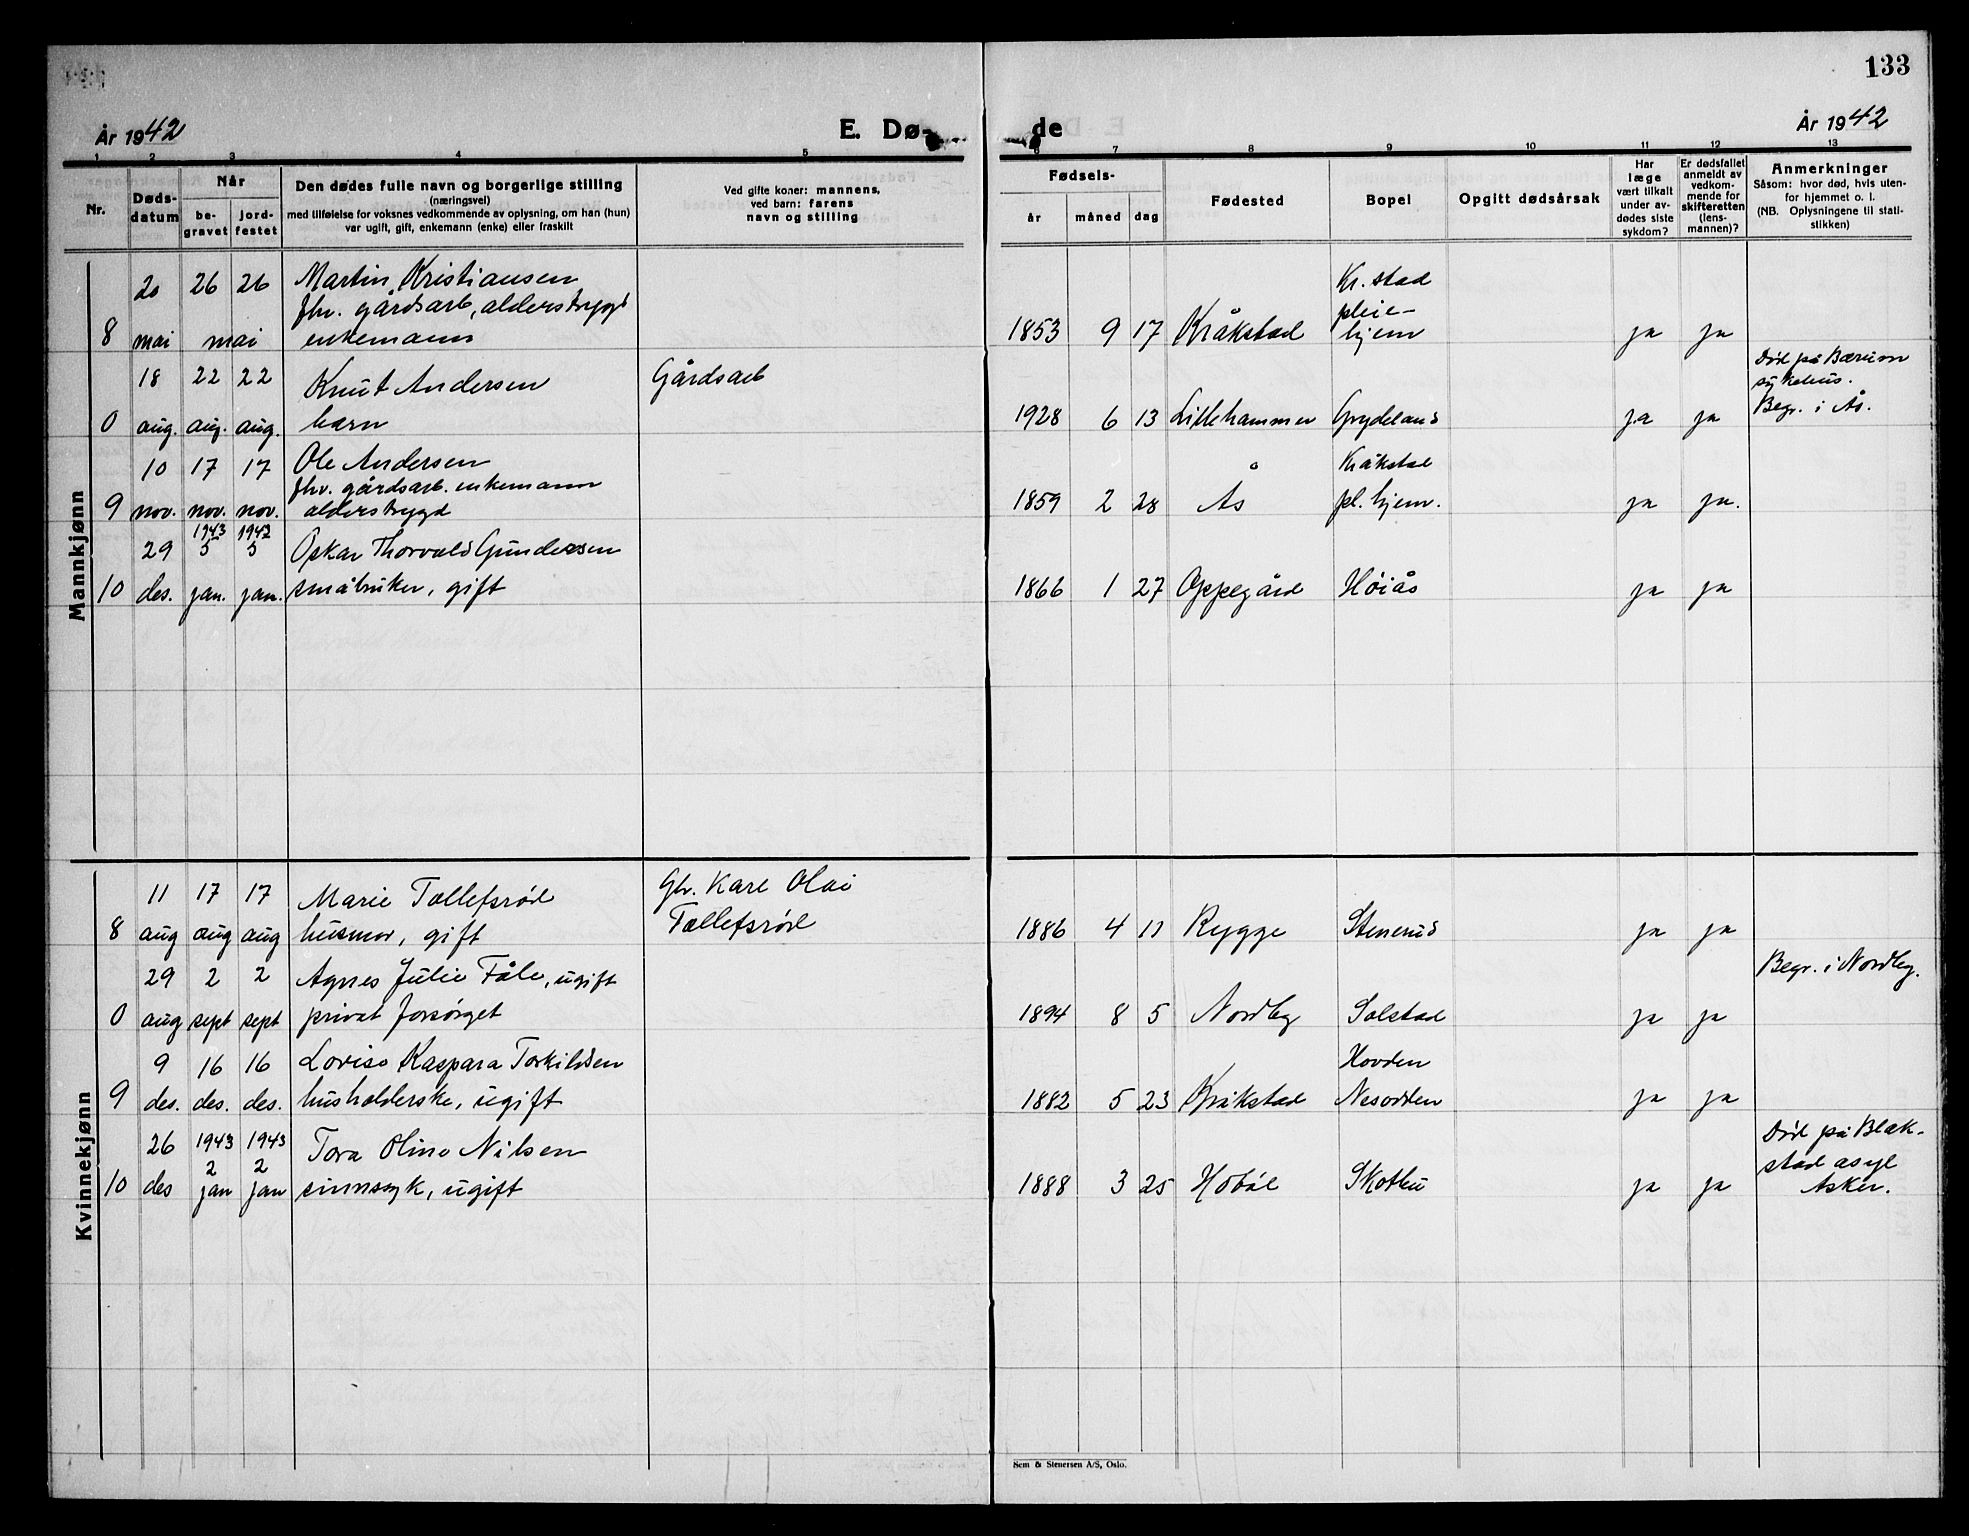 133
År 1942
E. Dø-
de
År 1942
1 2 3 4 5 6 7 8 9 10 11 12 13
Nr.
Døds-
datum
Når
be-
gravet
jord-
festet
Den dødes fulle navn og borgerlige stilling
(næringsvei)
med tilføielse for voksnes vedkommende av oplysning, om han (hun)
var ugift, gift, enkemann (enke) eller fraskilt
Ved gifte koner: mannens,
ved barn: farens
navn og stilling
Fødsels-
år måned dag
Fødested
Bopel
Opgitt dødsårsak
Har
læge
vært tilkalt
under av-
dødes siste
sykdom?
Er dødsfallet
anmeldt av
vedkom-
mende for
skifteretten
(lens-
mannen)?
Anmerkninger
Såsom: hvor død, hvis uten-
for hjemmet o. l.
(NB. Oplysningene til stati-
stikken)
Mannkjønn
20 26 26 Martin Kristiansen Kr. stad
fhv. gårdsarb, alderstrygd pleie-
8 mai mai enkemann 1853 9 17 Kråkstad hjem ja ja
18 22 22 Knut Andersen Gårdsarb Død på Bærum
sykehus.
0 aug. aug. aug. barn 1928 6 13 Lillehammer Grydeland ja ja Begr. i Ås.
10 17 17 Ole Andersen Kråkstad
fhv. gårdsarb. enkemann
9 nov. nov. nov. alderstrygd 1859 2 28 Ås pl. hjem. ja ja.
1943 1943
29 5 5 Oskar Thorvald Gundersen
10 des. jan. jan. småbruker, gift 1866 1 27 Oppegård Høiås ja ja
Kvinnekjønn
11 17 17 Marie Tollefsrød Gbr. Karl Olai
8 aug aug aug husmor, gift Tollefsrød 1886 4 11 Rygge Stenerud ja ja
29 2 2 Agnes Julie Fåle, ugift Begr. i Nordby.
0 aug sept sept privat forsørget 1894 8 5 Nordby Solstad ja ja
9 16 16 Lovise Kaspara Torkildsen Hovden
9 des. des. des. husholderske, ugift 1882 5 23 Kråkstad Nesodden ja ja
26 1943 1943 Tora Oline Nilsen Død på Blak-
2 2 stad asyl
10 des jan jan sinnssyk, ugift 1888 3 25 Hobøl Skotbu ja ja Asker.
Sem & Stenersen A/S, Oslo.